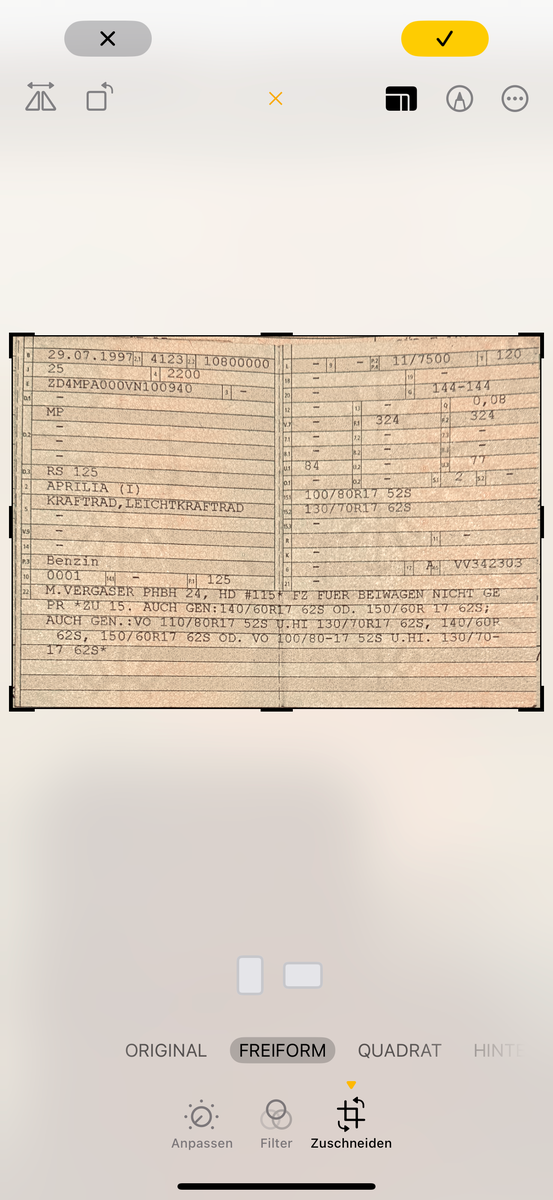 29.07.1997 4123 10800000
25 2200
ZD4MPA000VN100940 -
-
MP
-
-
-
RS 125
APRILIA (I)
KRAFTRAD,LEICHTKRAFTRAD
-
-
-
Benzin
0001 - 125
- - 11/7500 120
- -
- 144-144
- 0,08
- 324 324
-
-
-
84 - 77
- 2 -
100/80R17 52S
130/70R17 62S
-
- -
-
- A VV342303
-
M.VERGASER PHBH 24, HD #115* FZ FUER BEIWAGEN NICHT GE
PR *ZU 15. AUCH GEN:140/60R17 62S OD. 150/60R 17 62S;
AUCH GEN.:VO 110/80R17 52S U.HI 130/70R17 62S, 140/60R
62S, 150/60R17 62S OD. VO 100/80-17 52S U.HI. 130/70-
17 62S*
ORIGINAL FREIFORM QUADRAT HINTE
Anpassen Filter Zuschneiden